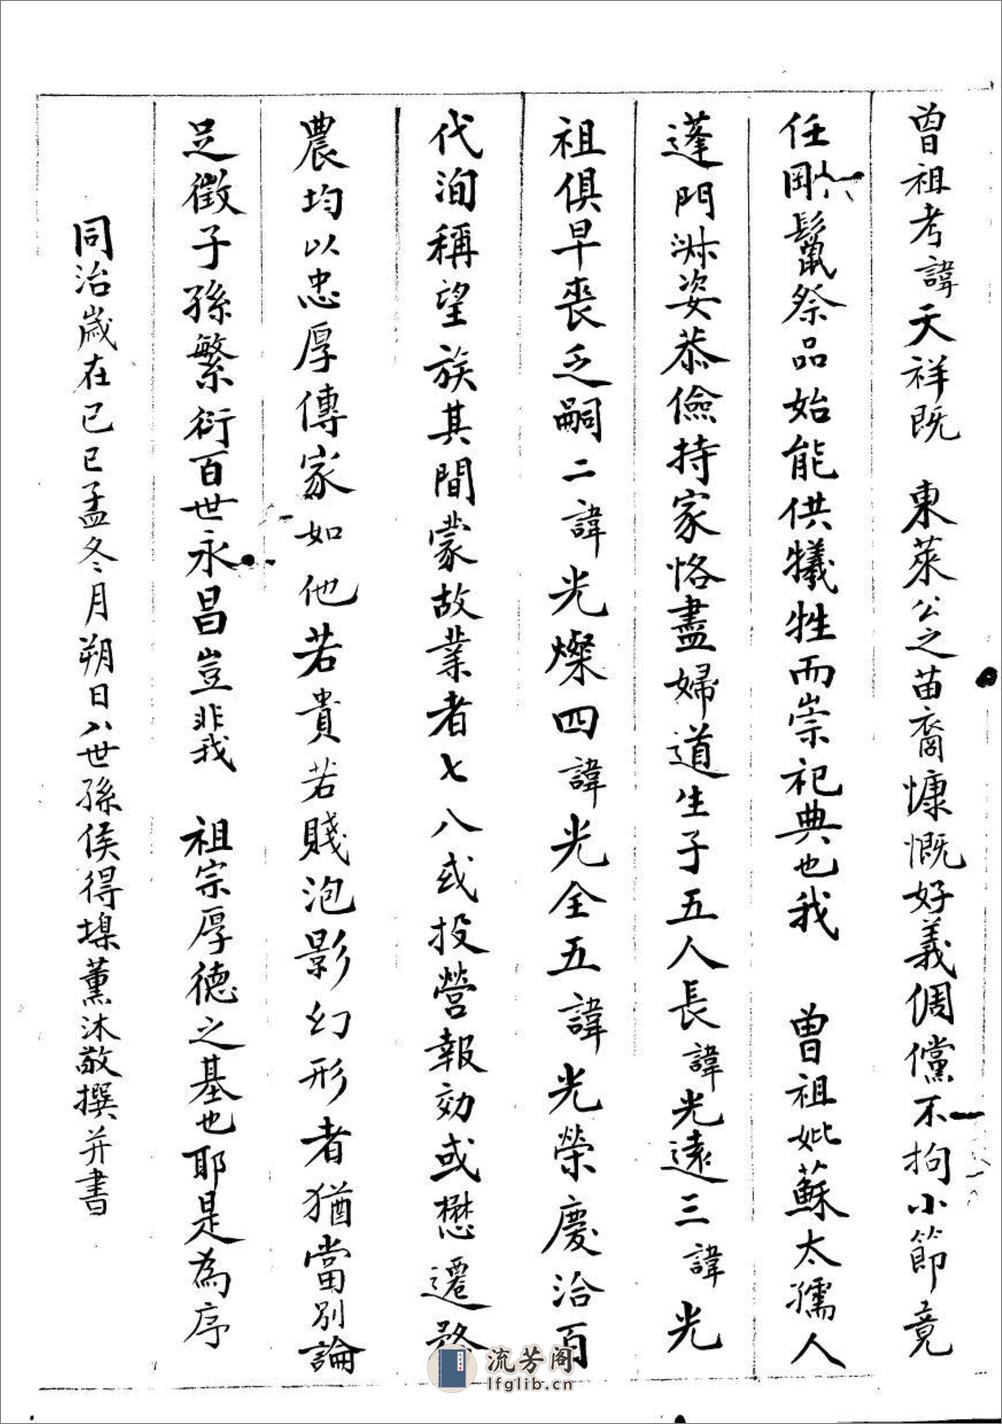 曾祖考諱天祥既 東萊公之苗裔慷慨好義倜儻不拘小節竟
任剛鬣祭品始能供犧牲而崇祀典也我 曾祖妣蘇太孺人
蓬門淑姿恭儉持家恪盡婦道生子五人長諱光遠三諱光
祖俱早喪乏嗣二諱光燦四諱光全五諱光榮慶洽百
代洵稱望族其間蒙故業者七八或投營報効或懋遷務
農均以忠厚傳家如他若貴若賤泡影幻形者猶當別論
足徵子孫繁衍百世永昌豈非我 祖宗厚德之基也耶是為序
同治歲在已巳孟冬月朔日八世孫侯得堁薰沐敬撰并書
流芳阁
lfglib.cn